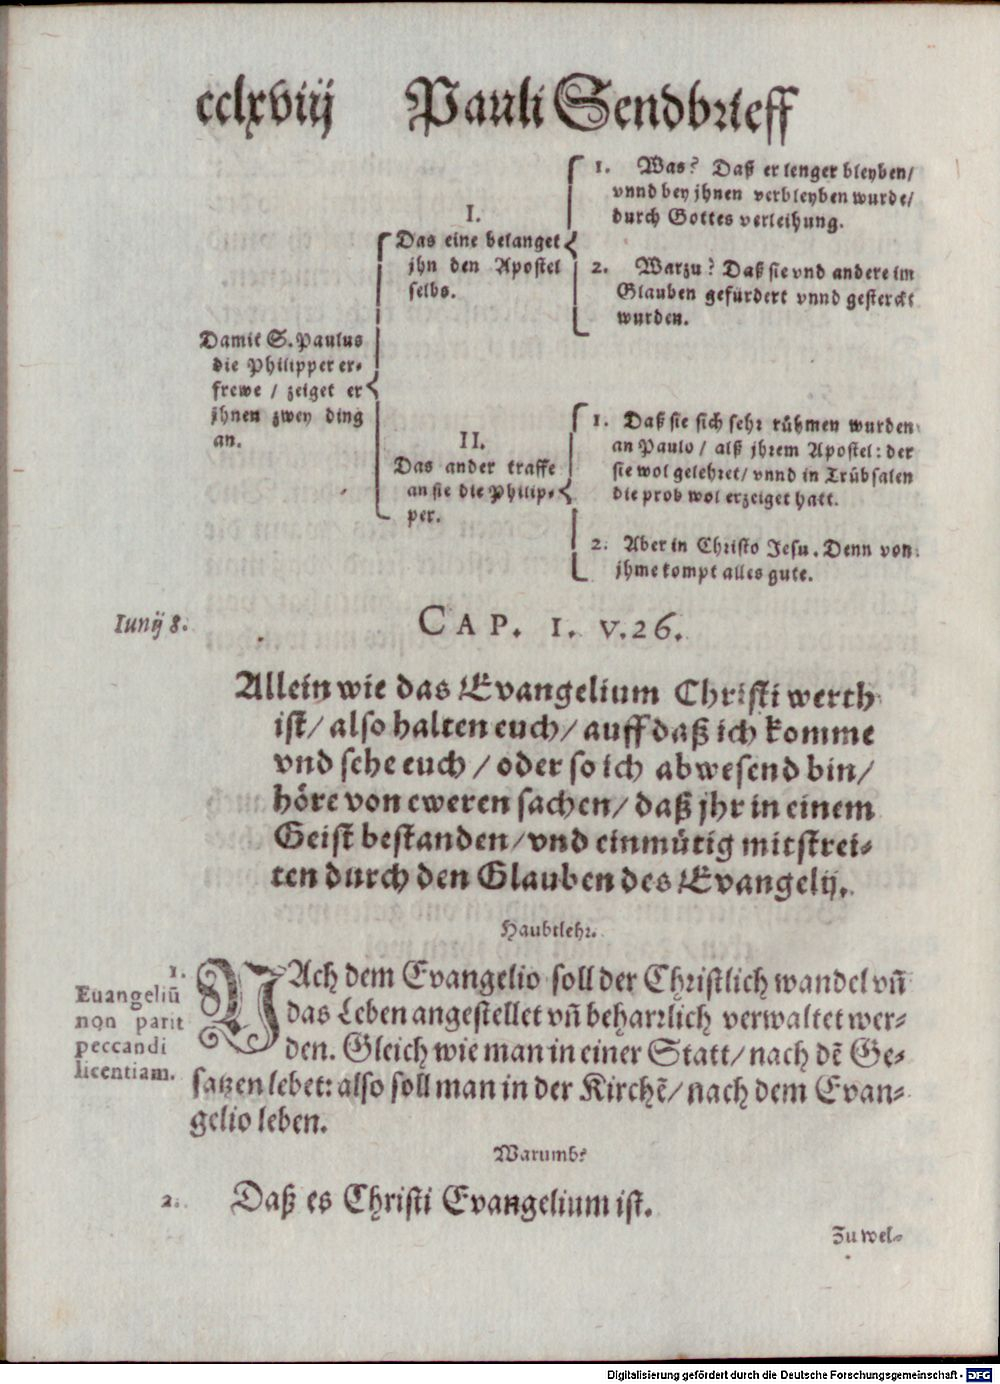 cclxviij Pauli Sendbrieff
Damit S. Paulus
die Philipper er-
frewe / zeiget er
jhnen zwey ding
an.
I.
Das eine belanget
jhn den Apostel
selbs.
1. Was? Daß er lenger bleyben/
vnnd bey jhnen verbleyben wurde/
durch Gottes verleihung.
2. Warzu? Daß sie vnd andere im
Glauben gefürdert vnnd gesterckt
wurden.
II.
Das ander traffe
an sie die Philip-
per.
1. Daß sie sich sehr rühmen wurden
an Paulo / alß jhrem Apostel: der
sie wol gelehret/ vnnd in Trübsalen
die prob wol erzeiget hatt.
2. Aber in Christo Jesu. Denn von
jhme kompt alles gute.
Iunij 8.
CAP. I. v.26.
Allein wie das Evangelium Christi werth
ist/ also halten euch/ auff daß ich komme
vnd sehe euch / oder so ich abwesend bin/
höre von eweren sachen/ daß jhr in einem
Geist bestanden/ vnd einmütig mitstrei-
ten durch den Glauben des Evangelij.
Haubtlehr.
1.
Euangeliũ
non parit
peccandi
licentiam.
NAch dem Evangelio soll der Christlich wandel vñ
das Leben angestellet vñ beharrlich verwaltet wer-
den. Gleich wie man in einer Statt/ nach dẽ Ge-
satzen lebet: also soll man in der Kirchẽ/ nach dem Evan-
gelio leben.
Warumb?
2. Daß es Christi Evangelium ist.
Zu wel-
Digitalisierung gefördert durch die Deutsche Forschungsgemeinschaft - DFG